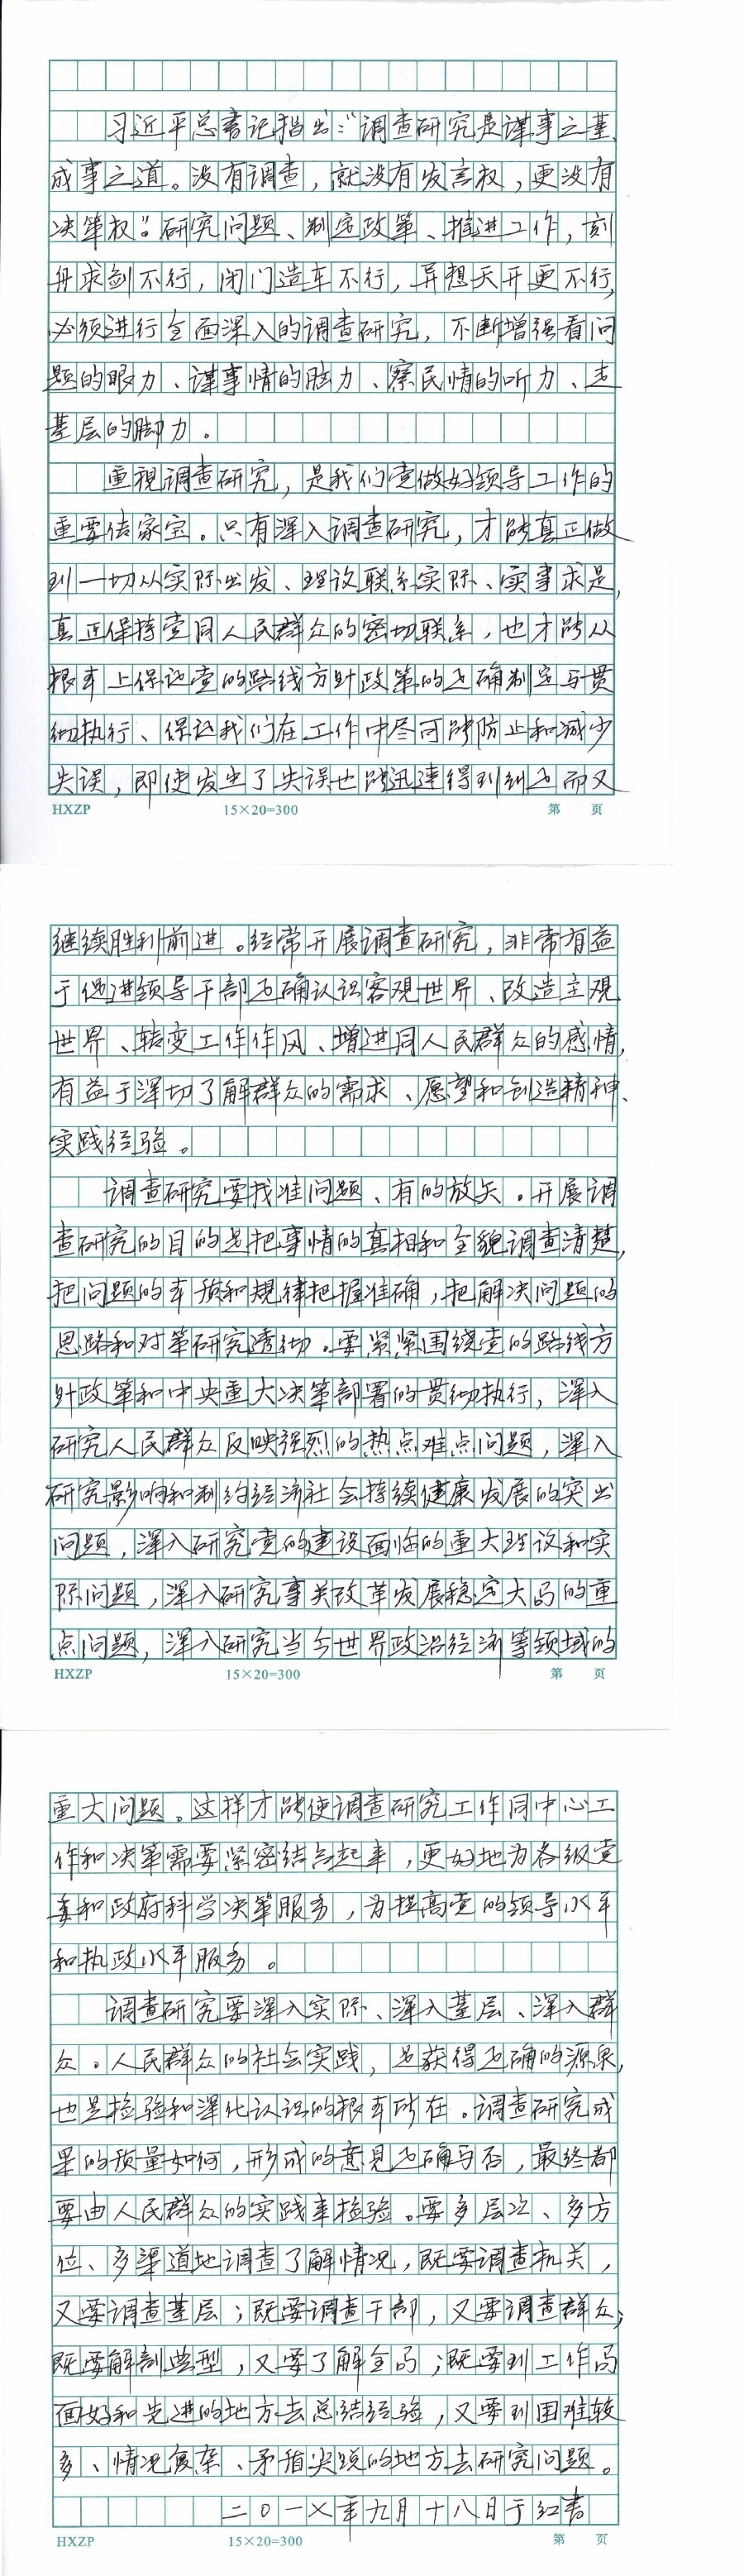 习近平总书记指出：“调查研究是谋事之基、
成事之道。没有调查，就没有发言权，更没有
决策权”。研究问题、制定政策、推进工作，刻
舟求剑不行，闭门造车不行，异想天开更不行，
必须进行全面深入的调查研究，不断增强看问
题的眼力、谋事情的脑力、察民情的听力、走
基层的脚力。
重视调查研究，是我们党做好领导工作的
重要传家宝。只有深入调查研究，才能真正做
到一切从实际出发、理论联系实际、实事求是，
真正保持党同人民群众的密切联系，也才能从
根本上保证党的路线方针政策的正确制定与贯
彻执行、保证我们在工作中尽可能防止和减少
失误，即使发生了失误也能迅速得到纠正而又
HXZP 15×20=300 第 页
继续胜利前进。经常开展调查研究，非常有益
于促进领导干部正确认识客观世界、改造主观
世界、转变工作作风、增进同人民群众的感情，
有益于深切了解群众的需求、愿望和创造精神、
实践经验。
调查研究要找准问题、有的放矢。开展调
查研究的目的是把事情的真相和全貌调查清楚，
把问题的本质和规律把握准确，把解决问题的
思路和对策研究透彻。要紧紧围绕党的路线方
针政策和中央重大决策部署的贯彻执行，深入
研究人民群众反映强烈的热点难点问题，深入
研究影响和制约经济社会持续健康发展的突出
问题，深入研究党的建设面临的重大理论和实
际问题，深入研究事关改革发展稳定大局的重
点问题，深入研究当今世界政治经济等领域的
HXZP 15×20=300 第 页
重大问题。这样才能使调查研究工作同中心工
作和决策需要紧密结合起来，更好地为各级党
委和政府科学决策服务，为提高党的领导水平
和执政水平服务。
调查研究要深入实际、深入基层、深入群
众。人民群众的社会实践，是获得正确的源泉，
也是检验和深化认识的根本所在。调查研究成
果的质量如何，形成的意见正确与否，最终都
要由人民群众的实践来检验。要多层次、多方
位、多渠道地调查了解情况，既要调查机关，
又要调查基层；既要调查干部，又要调查群众；
既要解剖典型，又要了解全局；既要到工作局
面好和先进的地方去总结经验，又要到困难较
多、情况复杂、矛盾尖锐的地方去研究问题。
二〇一八年九月十八日于红书
HXZP 15×20=300 第 页